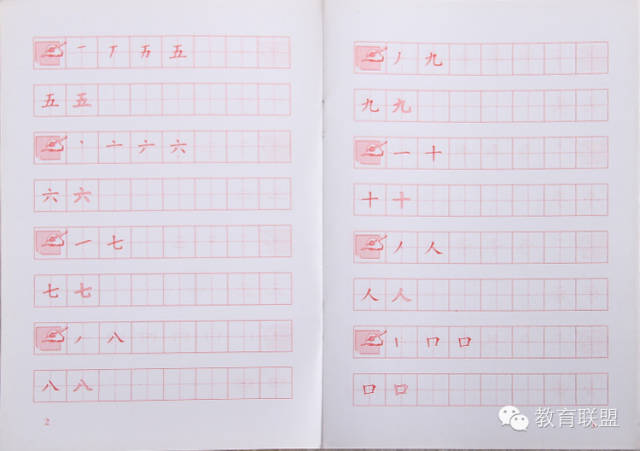 一 丆 五 五
五 五
丶 亠 六 六
六 六
一 七
七 七
丿 八
八 八
2
丿 九
九 九
一 十
十 十
丿 人
人 人
丨 冂 口
口 口
教育联盟